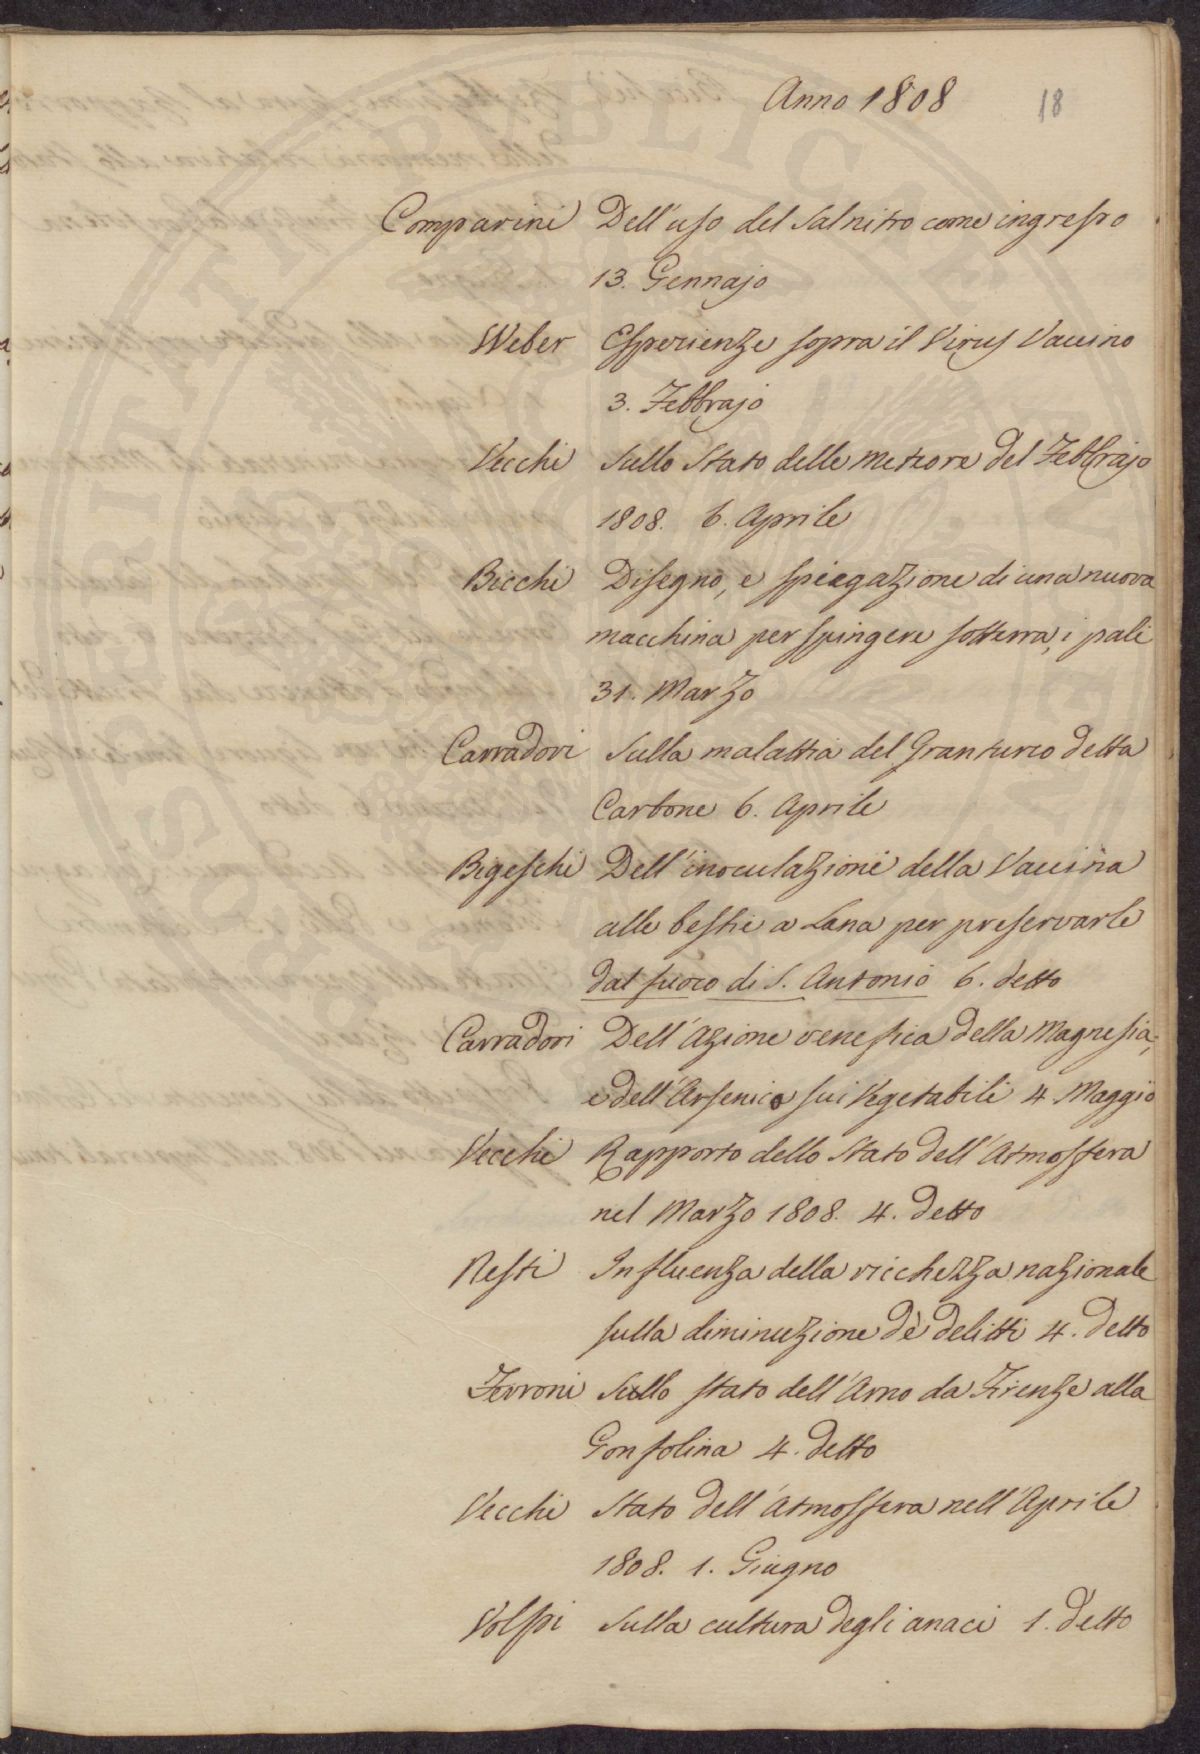 Anno 1808
18
Comparini Dell'uso del Salnitro come ingresso
13. Gennajo
Weber Esperienze sopra il Virus Vaccino
3. Febbrajo
Vecchi Sullo Stato delle meteore del Febbrajo
1808. 6. Aprile
Bicchi Disegno, e spiegazione di una nuova
macchina per spingere sotterra i pali
31. Marzo
Carradori Sulla malattia del Granturco detta
Carbone 6. Aprile
Bigeschi Dell'inoculazione della Vaccina
alle bestie a Lana per preservarle
dal fuoco di S. Antonio 6. detto
Carradori Dell'Azione venefica della Magnesia,
e dell'Arsenico sui Vegetabili 4 Maggio
Vecchi Rapporto dello Stato dell'Atmosfera
nel Marzo 1808. 4. detto
Nesti Influenza della ricchezza nazionale
sulla diminuzione de delitti 4. detto
Ferroni Sullo stato dell'Arno da Firenze alla
Gonfolina 4. detto
Vecchi Stato dell'Atmosfera nell'Aprile
1808. 1. Giugno
Volpi Sulla cultura degli anaci 1. detto